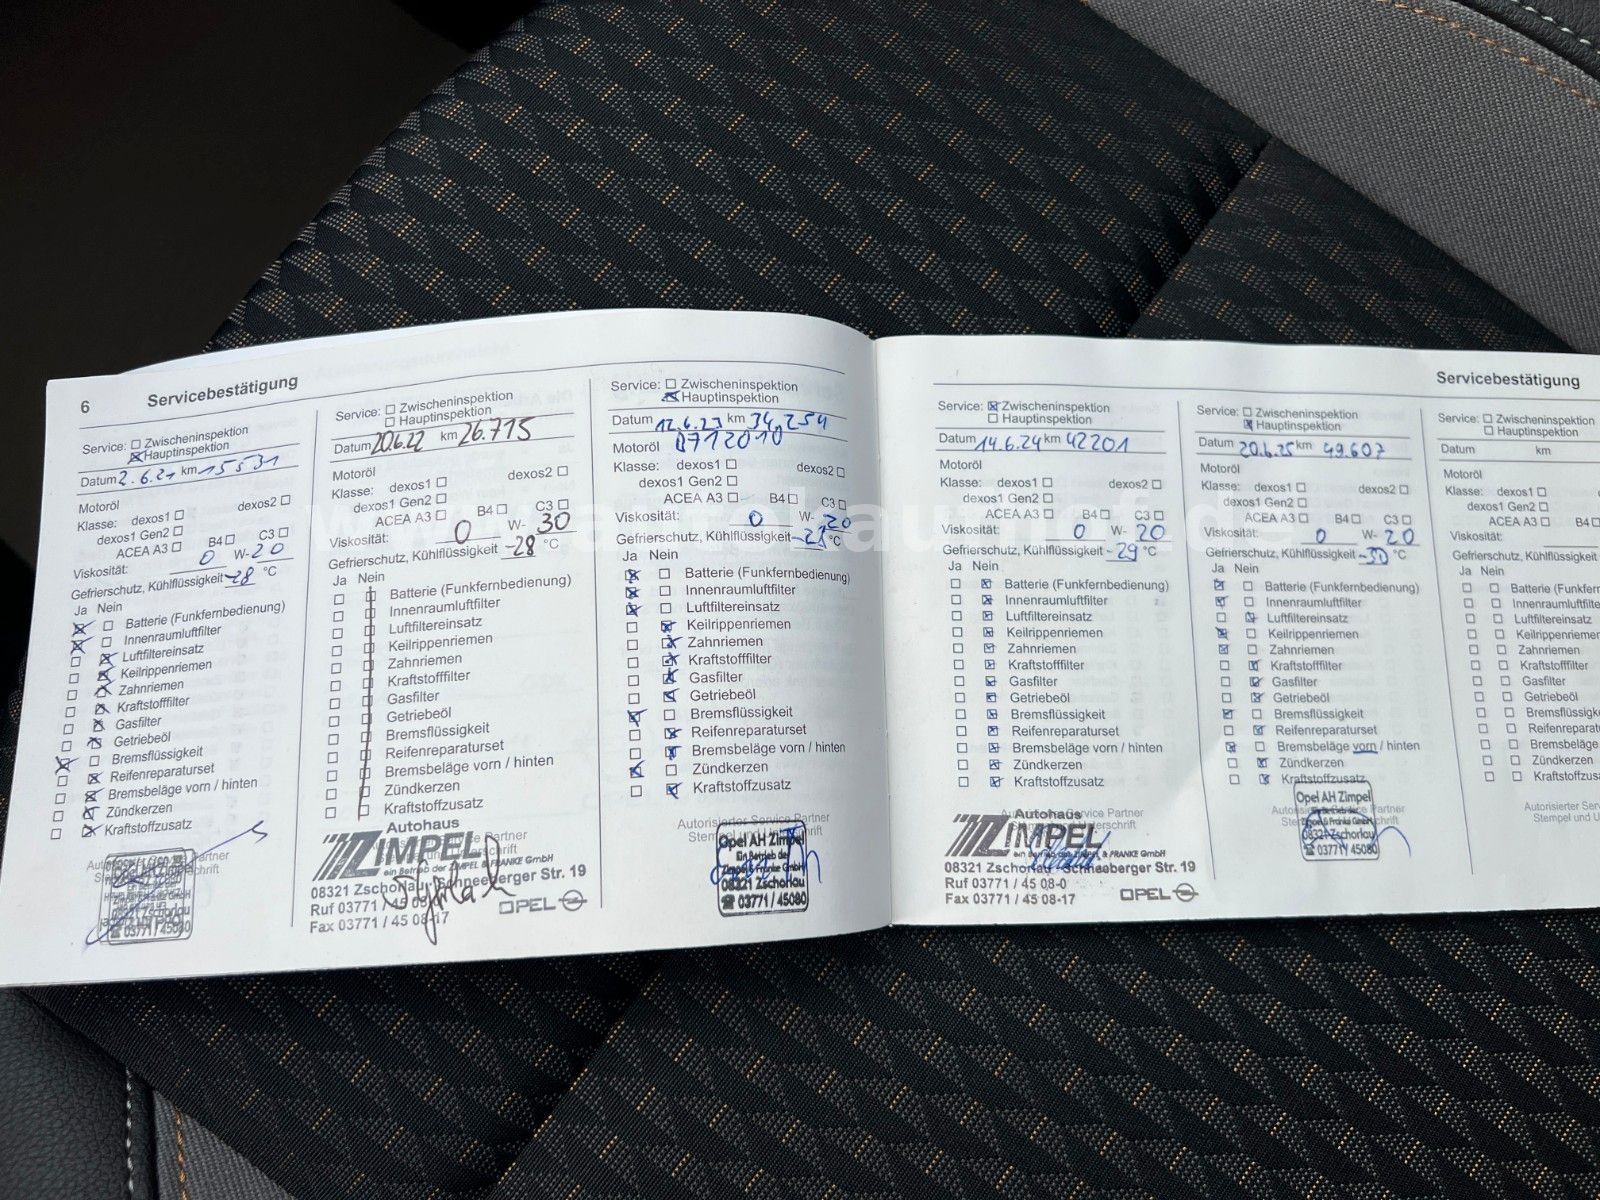 6 Servicebestätigung
Service: Zwischeninspektion
Hauptinspektion
Datum 2.6.21 km 15531
Motoröl
Klasse: dexos1 dexos2
dexos1 Gen2
ACEA A3 B4 C3
Viskosität: 0 W-20
Gefrierschutz, Kühlflüssigkeit -28 °C
Ja Nein
Batterie (Funkfernbedienung)
Innenraumluftfilter
Luftfiltereinsatz
Keilrippenriemen
Zahnriemen
Kraftstofffilter
Gasfilter
Getriebeöl
Bremsflüssigkeit
Reifenreparaturset
Bremsbeläge vorn / hinten
Zündkerzen
Kraftstoffzusatz
08321 Zschorlau
☎ 03771 / 45080
Service: Zwischeninspektion
Hauptinspektion
Datum 20.6.22 km 26.715
Motoröl
Klasse: dexos1 dexos2
dexos1 Gen2
ACEA A3 B4 C3
Viskosität: 0 W-30
Gefrierschutz, Kühlflüssigkeit -28 °C
Ja Nein
Batterie (Funkfernbedienung)
Innenraumluftfilter
Luftfiltereinsatz
Keilrippenriemen
Zahnriemen
Kraftstofffilter
Gasfilter
Getriebeöl
Bremsflüssigkeit
Reifenreparaturset
Bremsbeläge vorn / hinten
Zündkerzen
Kraftstoffzusatz
Autohaus
ZIMPEL
ein Betrieb der ZIMPEL & FRANKE GmbH
08321 Zschorlau, Schneeberger Str. 19
Ruf 03771 / 45 08-0
Fax 03771 / 45 08-17 OPEL
Service: Zwischeninspektion
Hauptinspektion
Datum 12.6.23 km 34.254
Motoröl 0712010
Klasse: dexos1 dexos2
dexos1 Gen2
ACEA A3 B4 C3
Viskosität: 0 W-20
Gefrierschutz, Kühlflüssigkeit °C
Ja Nein
Batterie (Funkfernbedienung)
Innenraumluftfilter
Luftfiltereinsatz
Keilrippenriemen
Zahnriemen
Kraftstofffilter
Gasfilter
Getriebeöl
Bremsflüssigkeit
Reifenreparaturset
Bremsbeläge vorn / hinten
Zündkerzen
Kraftstoffzusatz
Autorisierter Service Partner
Opel AH Zimpel
Ein Betrieb der
Zimpel & Franke GmbH
08321 Zschorlau
☎ 03771 / 45080
Servicebestätigung
Service: Zwischeninspektion
Hauptinspektion
Datum 14.6.24 km 42201
Motoröl
Klasse: dexos1 dexos2
dexos1 Gen2
ACEA A3 B4 C3
Viskosität: 0 W-20
Gefrierschutz, Kühlflüssigkeit -29 °C
Ja Nein
Batterie (Funkfernbedienung)
Innenraumluftfilter
Luftfiltereinsatz
Keilrippenriemen
Zahnriemen
Kraftstofffilter
Gasfilter
Getriebeöl
Bremsflüssigkeit
Reifenreparaturset
Bremsbeläge vorn / hinten
Zündkerzen
Kraftstoffzusatz
Autohaus
ZIMPEL
ein Betrieb der ZIMPEL & FRANKE GmbH
08321 Zschorlau, Schneeberger Str. 19
Ruf 03771 / 45 08-0
Fax 03771 / 45 08-17 OPEL
Service: Zwischeninspektion
Hauptinspektion
Datum 20.6.25 km 49.607
Motoröl
Klasse: dexos1 dexos2
dexos1 Gen2
ACEA A3 B4 C3
Viskosität: 0 W-20
Gefrierschutz, Kühlflüssigkeit -30 °C
Ja Nein
Batterie (Funkfernbedienung)
Innenraumluftfilter
Luftfiltereinsatz
Keilrippenriemen
Zahnriemen
Kraftstofffilter
Gasfilter
Getriebeöl
Bremsflüssigkeit
Reifenreparaturset
Bremsbeläge vorn / hinten
Zündkerzen
Kraftstoffzusatz
Opel AH Zimpel
08321 Zschorlau
☎ 03771 / 45080
Service: Zwischeninspektion
Hauptinspektion
Datum km
Motoröl
Klasse: dexos1
dexos1 Gen2
ACEA A3 B4
Viskosität:
Gefrierschutz, Kühlflüssigkeit
Ja Nein
Batterie (Funkfern
Innenraumluftfilter
Luftfiltereinsatz
Keilrippenriemen
Zahnriemen
Kraftstofffilter
Gasfilter
Getriebeöl
Bremsflüssigk
Reifenreparatu
Bremsbeläge
Zündkerzen
Kraftstoffzusa
Autorisierter Serv
Stempel und U